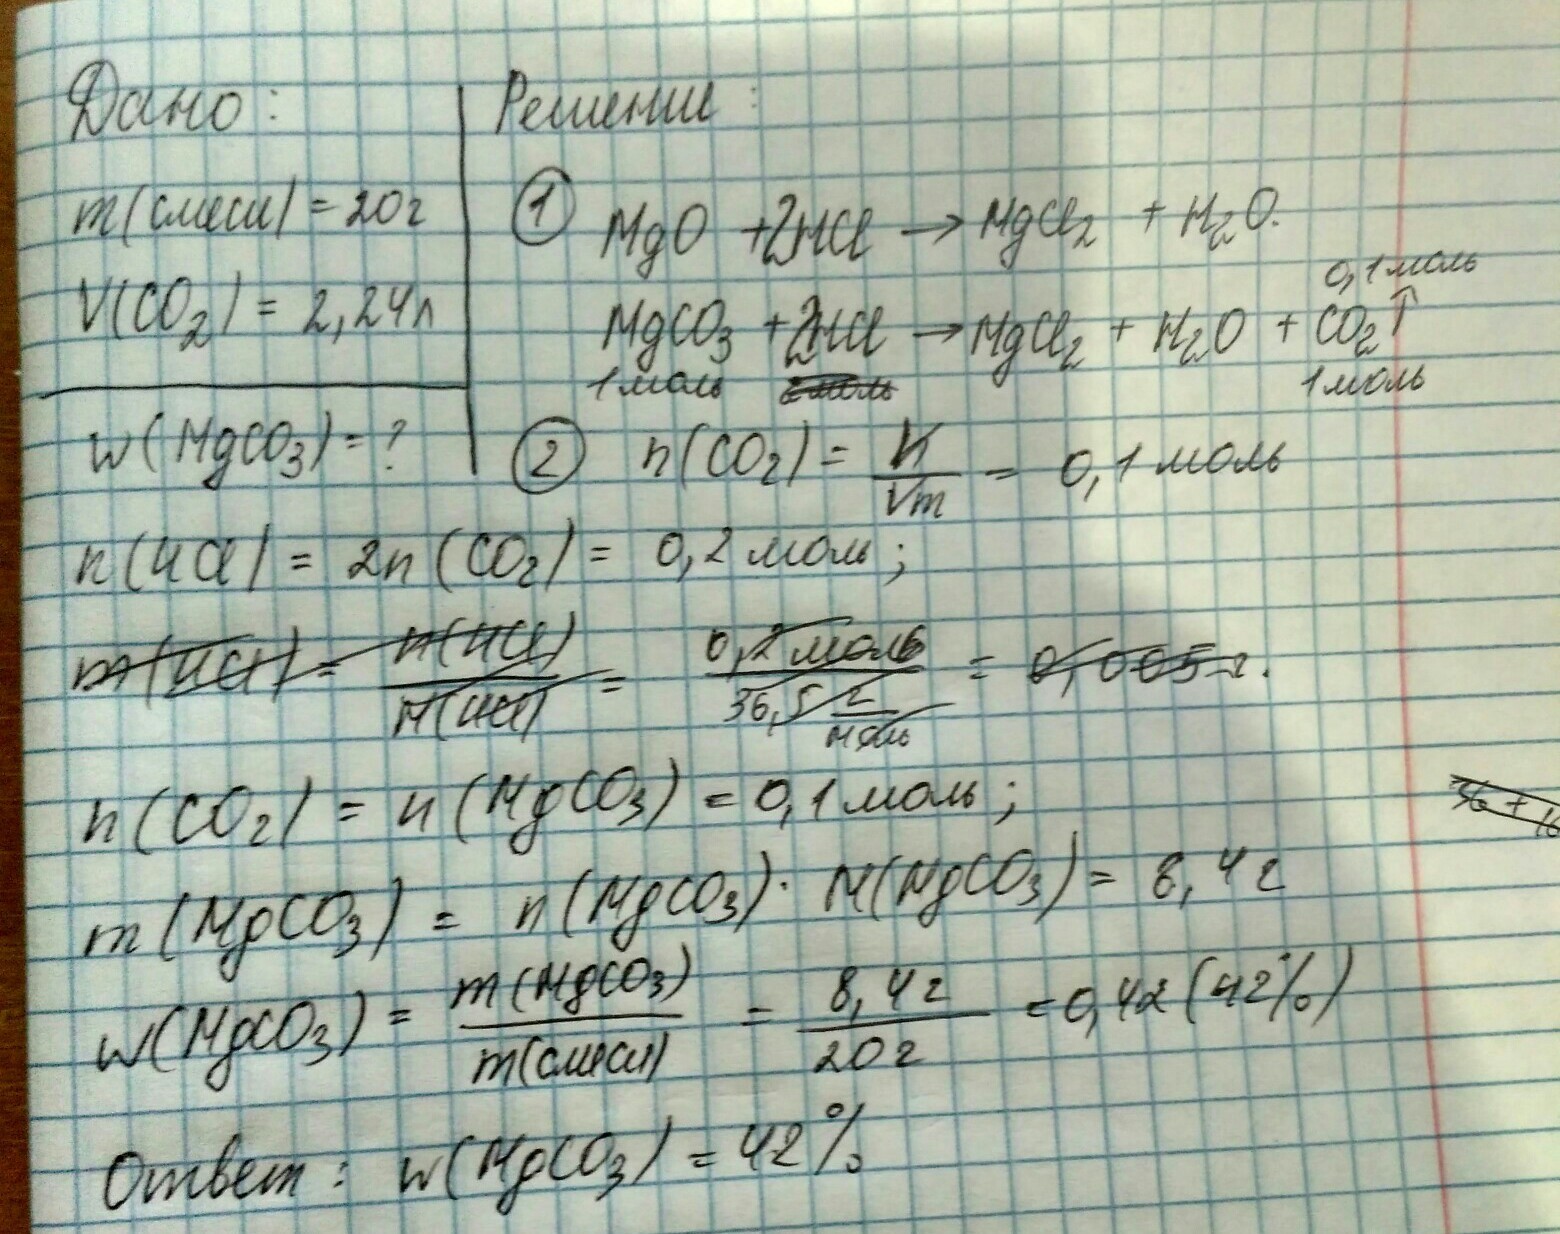 Дано:
m(смеси) = 20г
V(CO₂) = 2,24л
w(MgCO₃) = ?
Решение:
① MgO + 2HCl → MgCl₂ + H₂O.
0,1 моль
MgCO₃ + 2HCl → MgCl₂ + H₂O + CO₂↑
1 моль 2 моль 1 моль
② n(CO₂) = V/Vm = 0,1 моль
n(HCl) = 2n(CO₂) = 0,2 моль;
m(HCl) = n(HCl)/M(HCl) = 0,2 моль/36,5 г/моль = 0,005 г.
n(CO₂) = n(MgCO₃) = 0,1 моль;
36 + 16
m(MgCO₃) = n(MgCO₃) · M(MgCO₃) = 8,4 г
w(MgCO₃) = m(MgCO₃)/m(смеси) = 8,4 г/20 г = 0,42 (42%)
Ответ: w(MgCO₃) = 42%